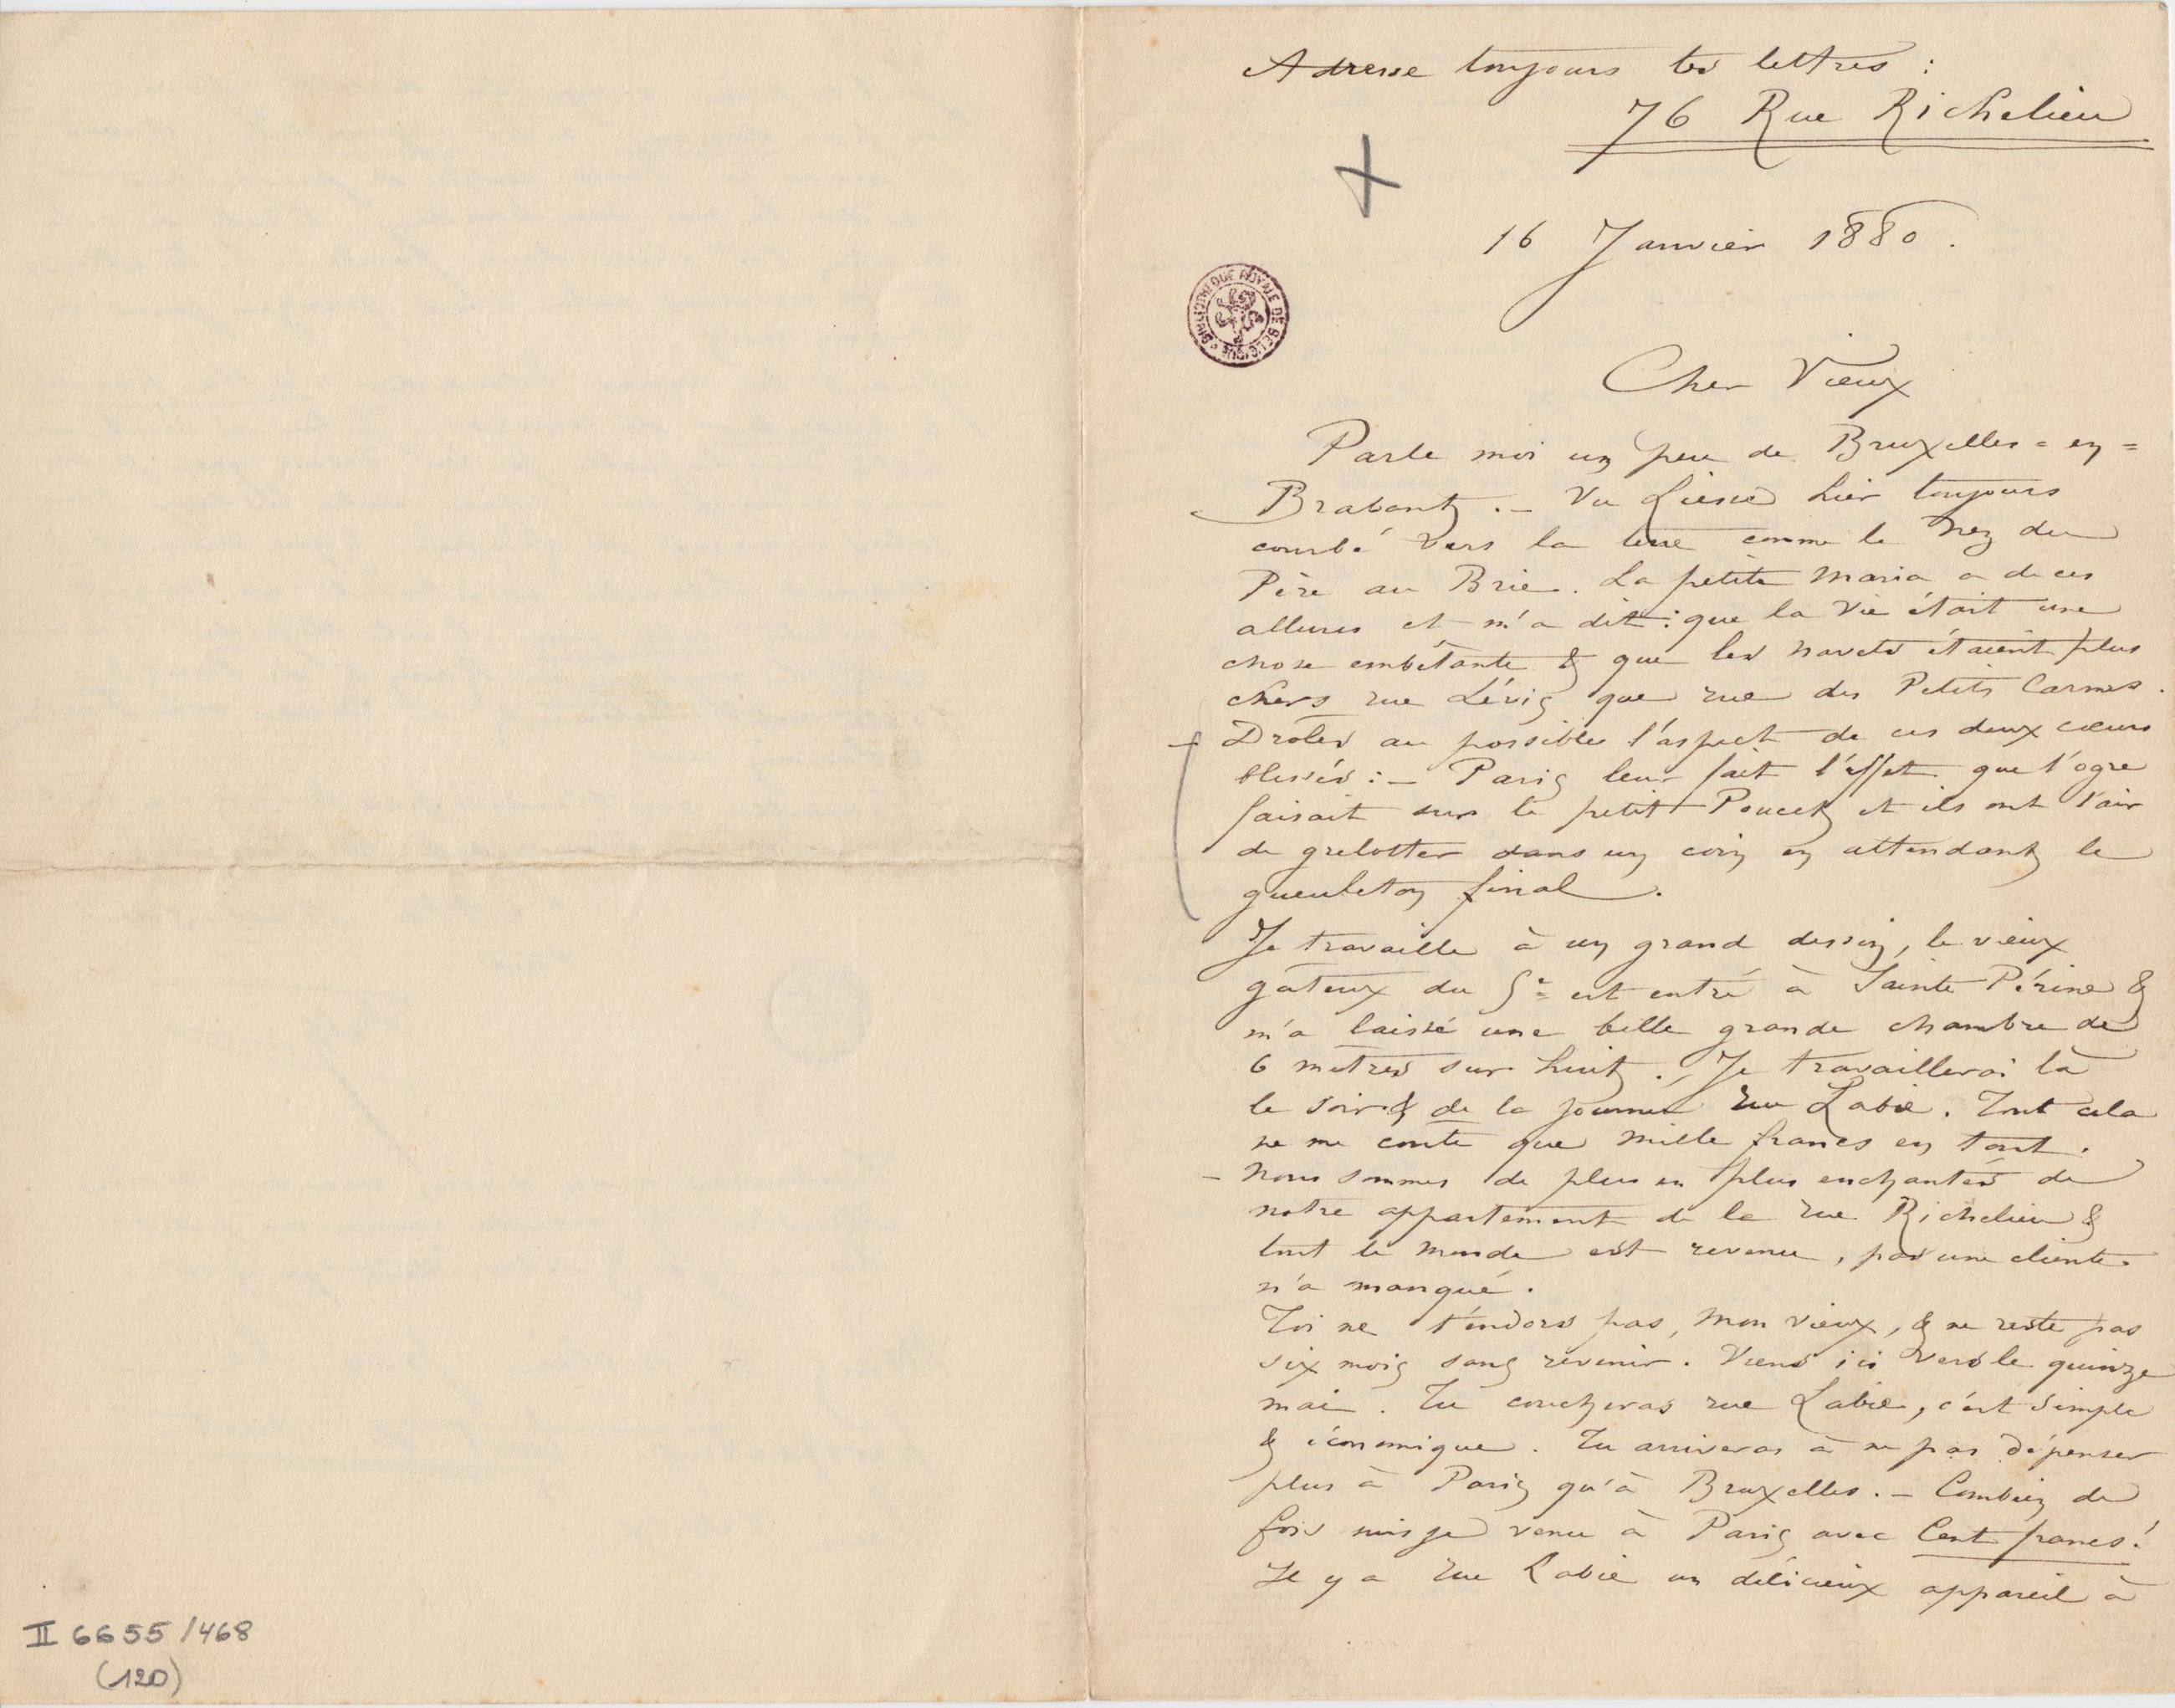 Adresse toujours tes lettres :
76 Rue Richelieu
16 Janvier 1880.
BIBLIOTHEQUE ROYALE DE BELGIQUE
Cher Vieux
Parle moi un peu de Bruxelles=en=
Brabant. – Vu Liesse hier toujours
courbé vers la terre comme le nez du
Père au Brie. La petite Maria a de ces
allures et m'a dit : que la vie était une
chose embêtante & que les navets étaient plus
chers rue Lévis que rue des Petits Carmes.
– Drôles au possible l'aspect de ces deux cœurs
blessés : – Paris leur fait l'effet que l'ogre
faisait sur le petit Poucet et ils ont l'air
de grelotter dans un coin en attendant le
gueuleton final.
Je travaille à un grand dessin, le vieux
gateux du 5e est entré à Sainte Périne &
m'a laissé une belle grande chambre de
6 metres sur huit. Je travaillerai là
le soir & de la journée rue Labie. Tout cela
ne me coute que mille francs en tout.
– Nous sommes de plus en plus enchantés de
notre appartement de la rue Richelieu &
tout le monde est revenu, pas une cliente
n'a manqué.
Toi ne t'endors pas, mon vieux, & ne reste pas
six mois sans revenir. Viens ici vers le quinze
mai. Tu coucheras rue Labie, c'est simple
& économique. Tu arriveras à ne pas dépenser
plus à Paris qu'à Bruxelles. – Combien de
fois suis je venu à Paris avec Cent francs!
Il y a rue Labie un délicieux appareil à
II 6655/468
(120)